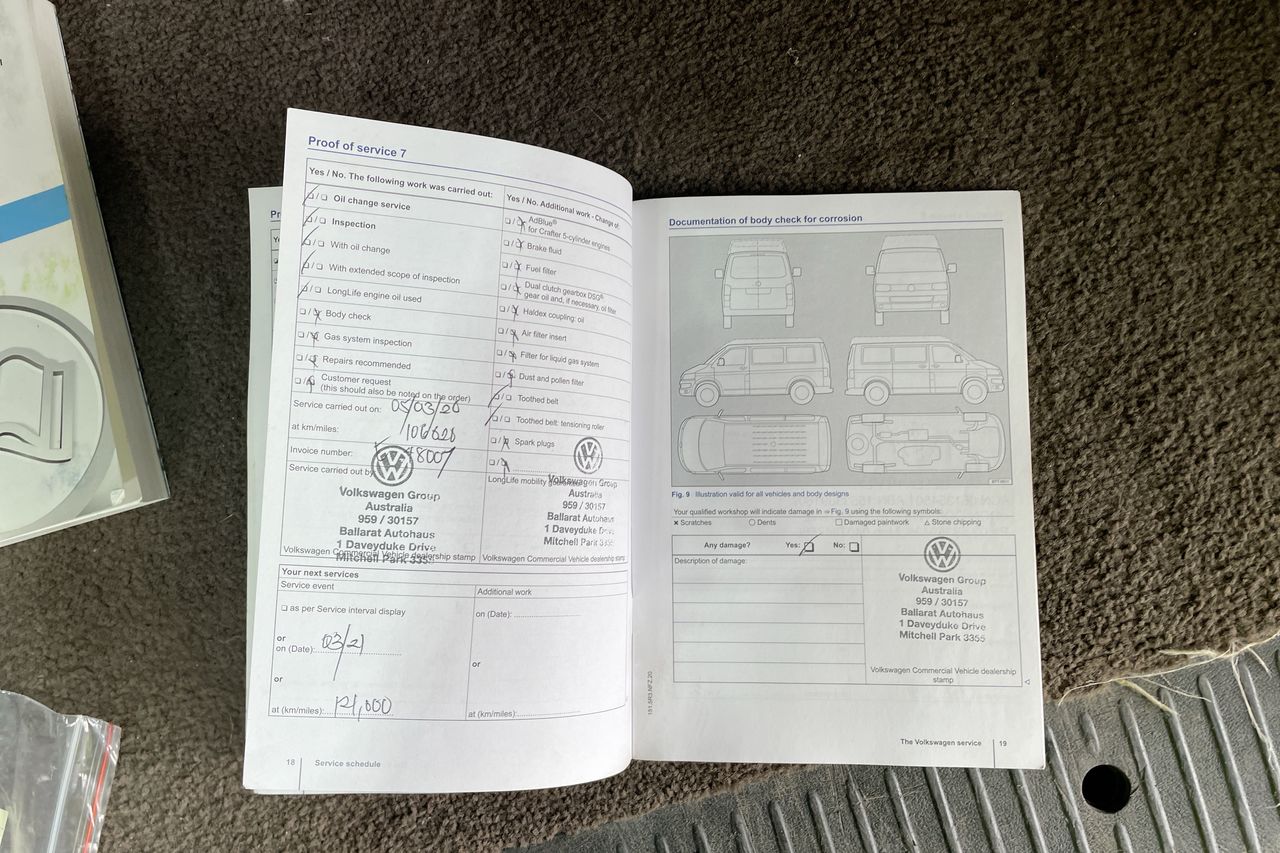 Proof of service 7
Yes / No. The following work was carried out:
Oil change service
Inspection
With oil change
With extended scope of inspection
LongLife engine oil used
Body check
Gas system inspection
Repairs recommended
Customer request
(this should also be noted on the order)
Service carried out on: 05/03/20
at km/miles: 106628
Invoice number: 48007
Service carried out by
Volkswagen Group
Australia
959 / 30157
Ballarat Autohaus
1 Daveyduke Drive
Mitchell Park 3355
Volkswagen Commercial Vehicle dealership stamp
Yes / No. Additional work - Change of:
AdBlue®
for Crafter 5-cylinder engines
Brake fluid
Fuel filter
Dual clutch gearbox DSG®
gear oil and, if necessary, oil filter
Haldex coupling: oil
Air filter insert
Filter for liquid gas system
Dust and pollen filter
Toothed belt
Toothed belt: tensioning roller
Spark plugs
LongLife mobility guarantee
Volkswagen Group
Australia
959 / 30157
Ballarat Autohaus
1 Daveyduke Drive
Mitchell Park 3355
Volkswagen Commercial Vehicle dealership stamp
Your next services
Service event
as per Service interval display
or
on (Date): 03/21
or
at (km/miles): 121,000
Additional work
on (Date):
or
at (km/miles):
18 Service schedule
Documentation of body check for corrosion
Fig. 9 Illustration valid for all vehicles and body designs
Your qualified workshop will indicate damage in ⇒ Fig. 9 using the following symbols:
× Scratches ○ Dents □ Damaged paintwork △ Stone chipping
Any damage? Yes: No:
Description of damage:
Volkswagen Group
Australia
959 / 30157
Ballarat Autohaus
1 Daveyduke Drive
Mitchell Park 3355
Volkswagen Commercial Vehicle dealership
stamp
151.5R3.NFZ.20
The Volkswagen service 19